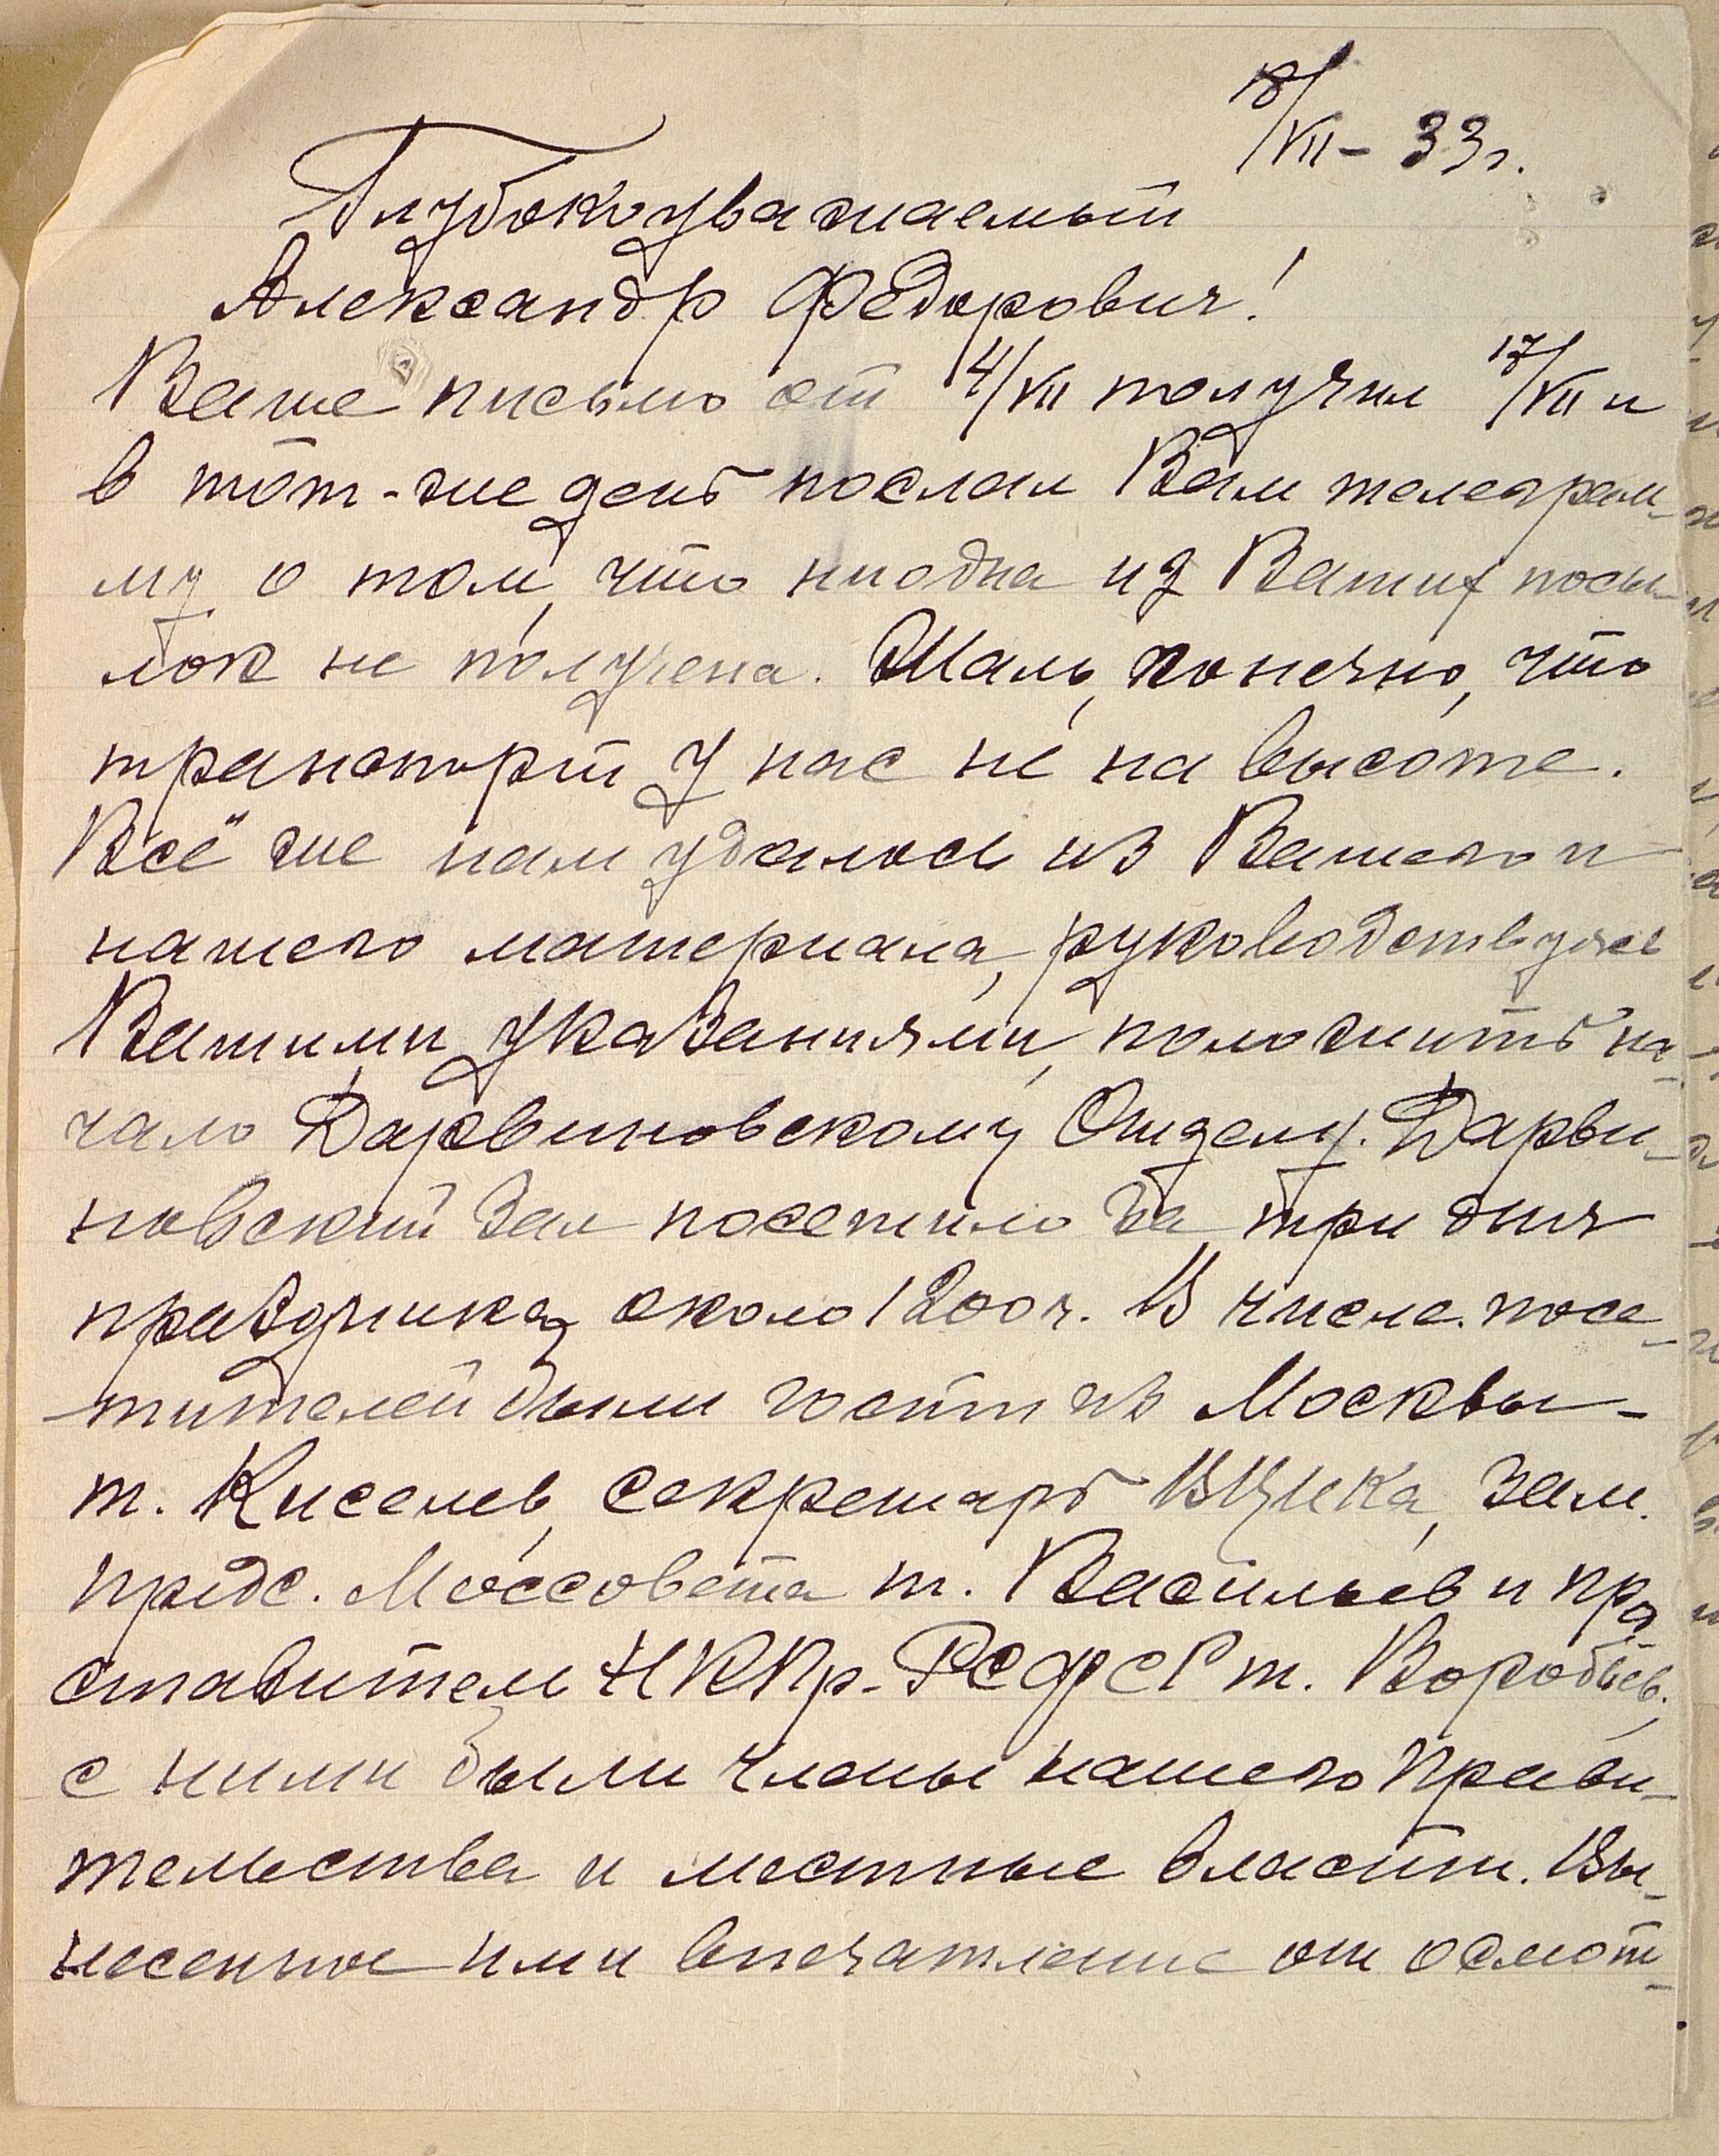 18/VII - 33 г.
Глубокоуважаемый
Александр Федорович!
Ваше письмо от 14/VII получил 17/VII и
в тот-же день послал Вам телеграм-
му о том, что ниодна из Ваших посы-
лок не получена. Жаль, конечно, что
транспорт у нас не на высоте.
Всё же нам удалось из Вашего и
нашего материала, руководствуясь
Вашими указаниями, положить на-
чало Дарвиновскому Отделу. Дарви-
новский зал посетило за три дня
праздника около 1200 ч. В числе посе-
тителей были гости из Москвы -
т. Киселев, секретарь ВЦИКа, Зам.
предс. Моссовета т. Васильев и пред
ставитель НКПр. РСФСР т. Воробьев,
с ними были члены нашего Прави-
тельства и местные власти. Вы-
несенное ими впечатление от осмот-